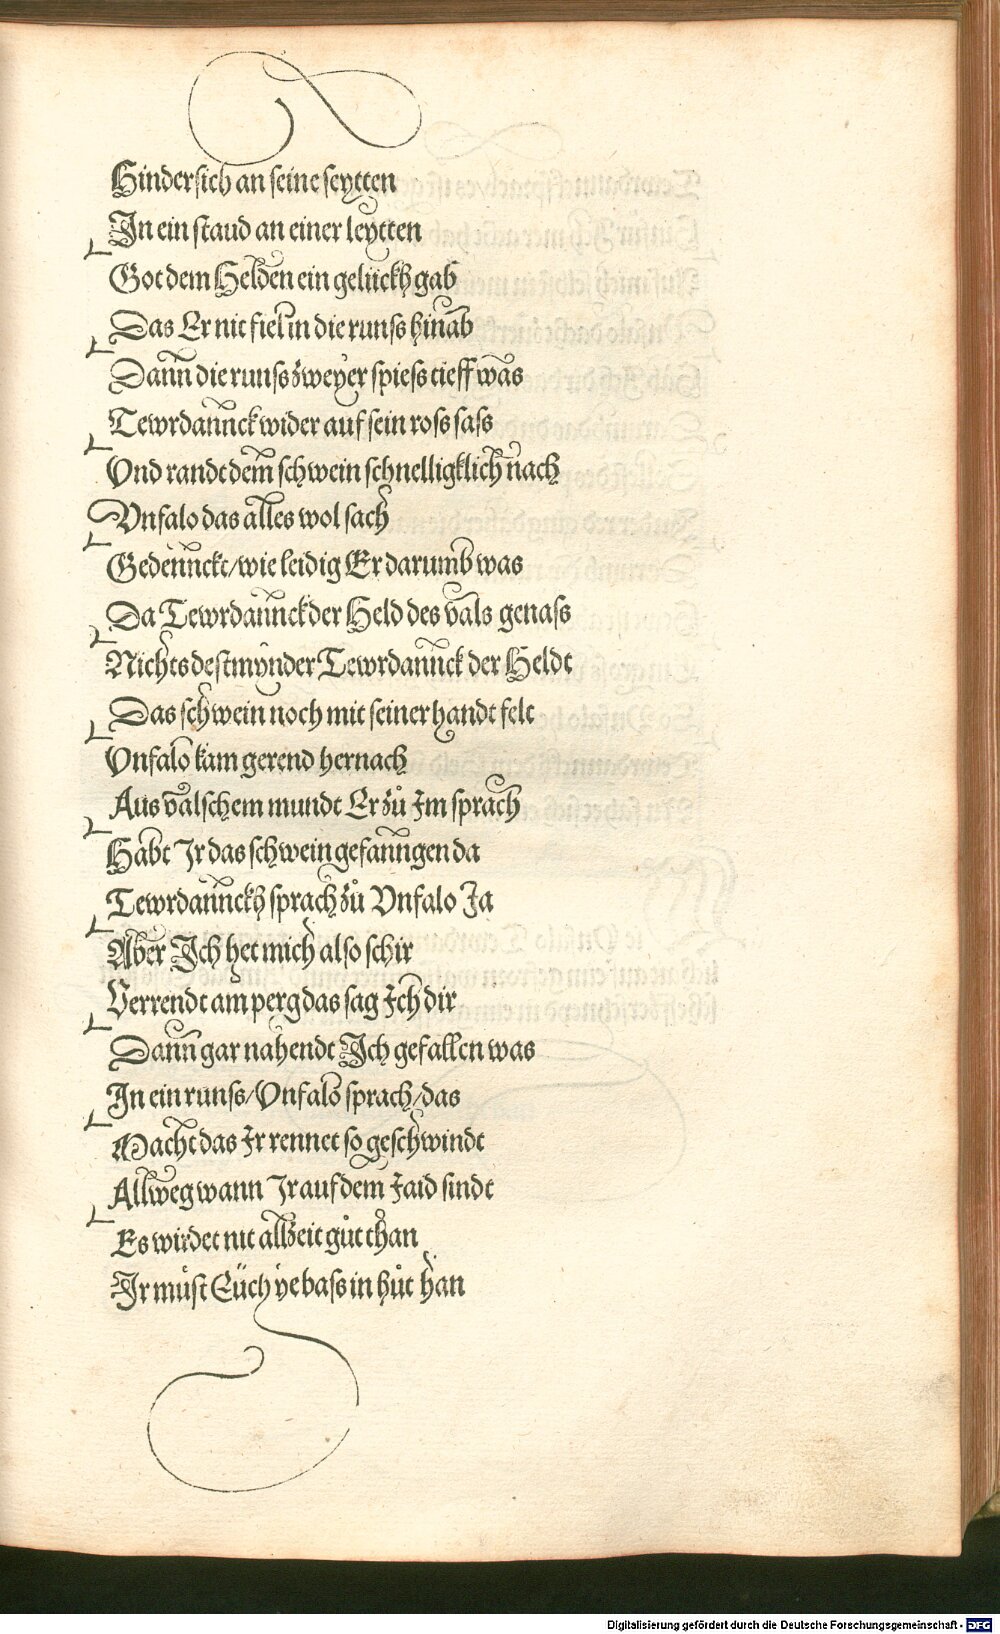 Hindersich an seine seytten
In ein staud an einer leytten
Got dem Helden ein gelückh gab
Das Er nit fiel in die runss hinab
Dann die runss zweyer spiess tieff was
Tewrdannck wider auf sein ross sass
Vnd randt dem schwein schnelligklich nach
Vnfalo das alles wol sach
Gedennckt/ wie leidig Er darumb was
Da Tewrdannck der Held des vals genass
Nichts destmynder Tewrdannck der Heldt
Das schwein noch mit seiner handt felt
Vnfalo kam gerend hernach
Aus valschem mundt Er zů Im sprach
Habt Ir das schwein gefanngen da
Tewrdannckh sprach zů Vnfalo Ja
Aber Ich het mich also schir
Verrendt am perg das sag Ich dir
Dann gar nahendt Ich gefallen was
In ein runss/ Vnfalo sprach/ das
Macht das Ir rennet so geschwindt
Allweg wann Ir auf dem Jaid sindt
Es wirdet nit allzeit gůt than
Ir můst Eüch ye bass in hůt han
Digitalisierung gefördert durch die Deutsche Forschungsgemeinschaft - DFG